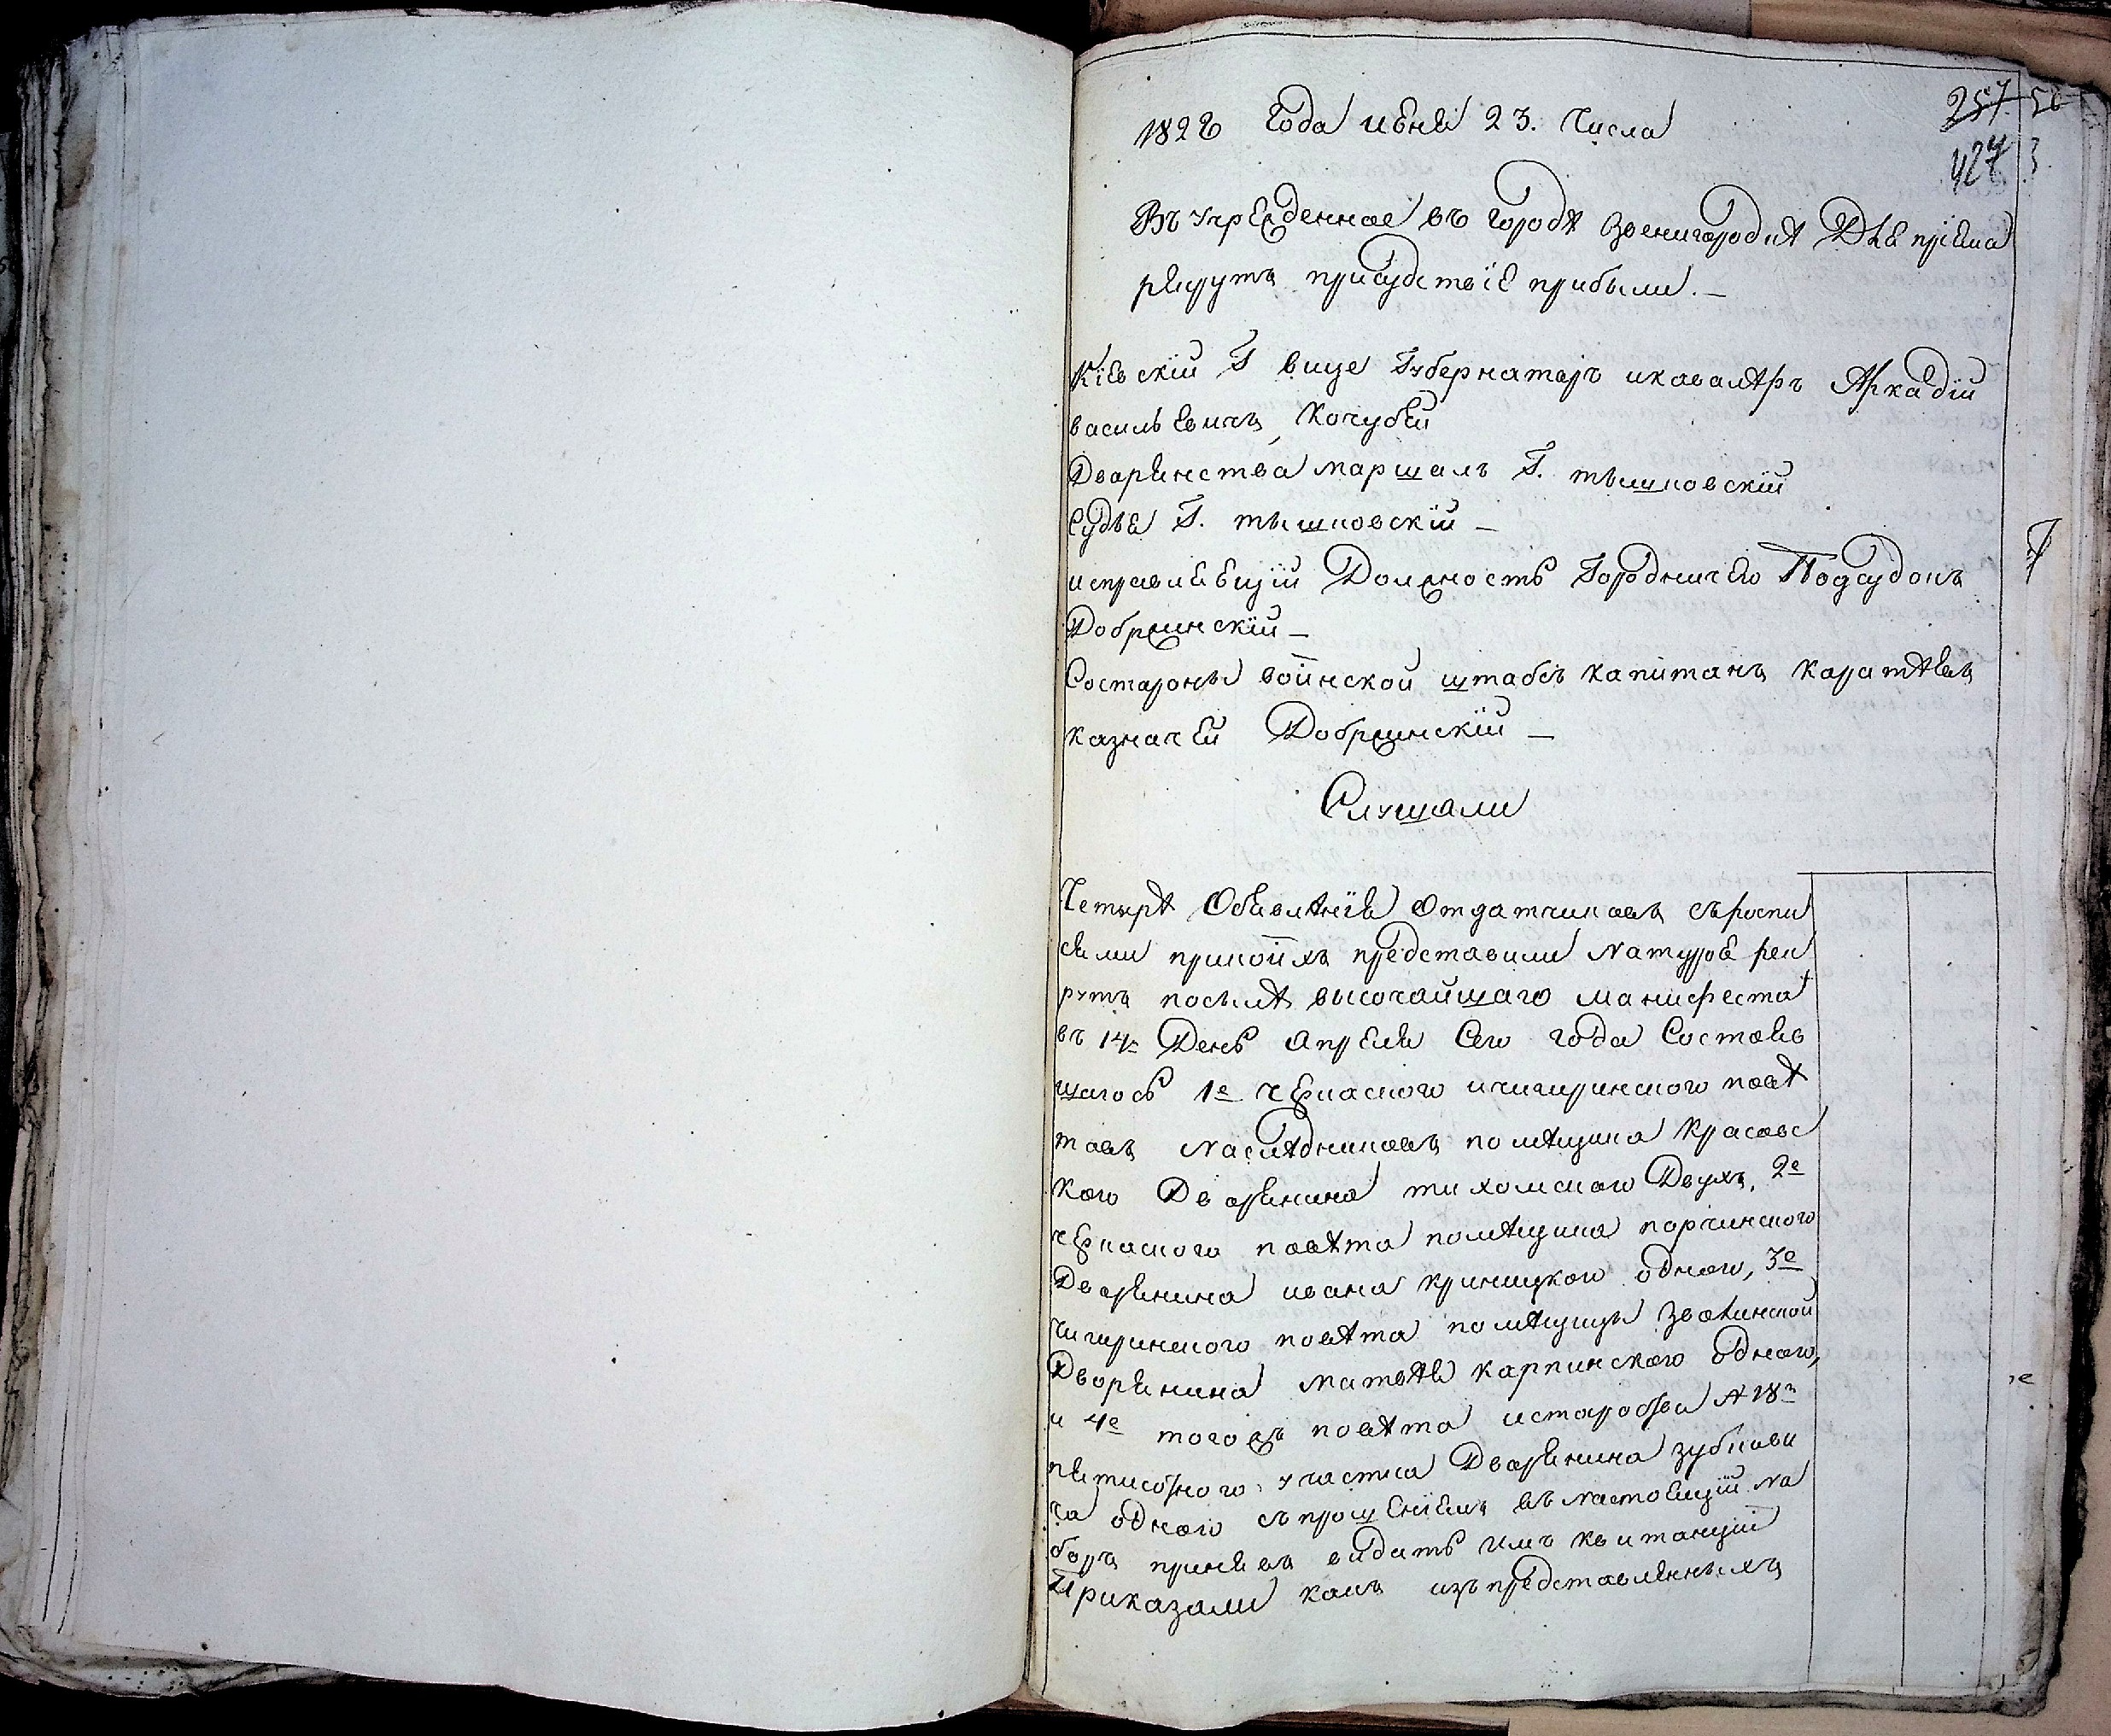 257. 56
427 3.
1828 года июня 23. Числа
Въ учрежденное въ городѣ Звенигородкѣ Для прїема
рекрутъ присудствїе прибыли. —
Кїевскїй Г вице Губернаторъ икавалѣръ Аркадїй
васильевичъ, Кочубей
Дворянства маршалъ Г. тышковскїй
Судья Г. тышковскїй —
исправляющїй Должность Городничего Подсудокъ
Добржинскїй —
Состороны воинской штабсъ капитанъ каратѣевъ
казначей Добржинскїй —
Слушали
Четырѣ Объявленїя Отдатчиковъ съроспи
сями прикоихъ представили Натурою рек
рутъ посилѣ высочайшаго манифеста
въ 14й День апреля Сего года Состояв
шагось 1е черкаского ичигиринского повѣ
товъ Наслѣдниковъ помѣщика Красовс
кого Дворянина тихомского Двухъ, 2е
черкаского повѣта помѣщика порчинского
Дворянина ивана криницкого одного, 3е
чигиринского повѣта помѣщицы звоаинской
Дворянина матвѣя карпинского одного,
и 4е тогожъ повѣта истаробы № 18й
пятисотного участка Дворянина зубкови
ча одного съпрошенїемъ въ настоящїй на
боръ принявъ видать имъ квитанцїи
Приказали какъ изъпредставленныхъ